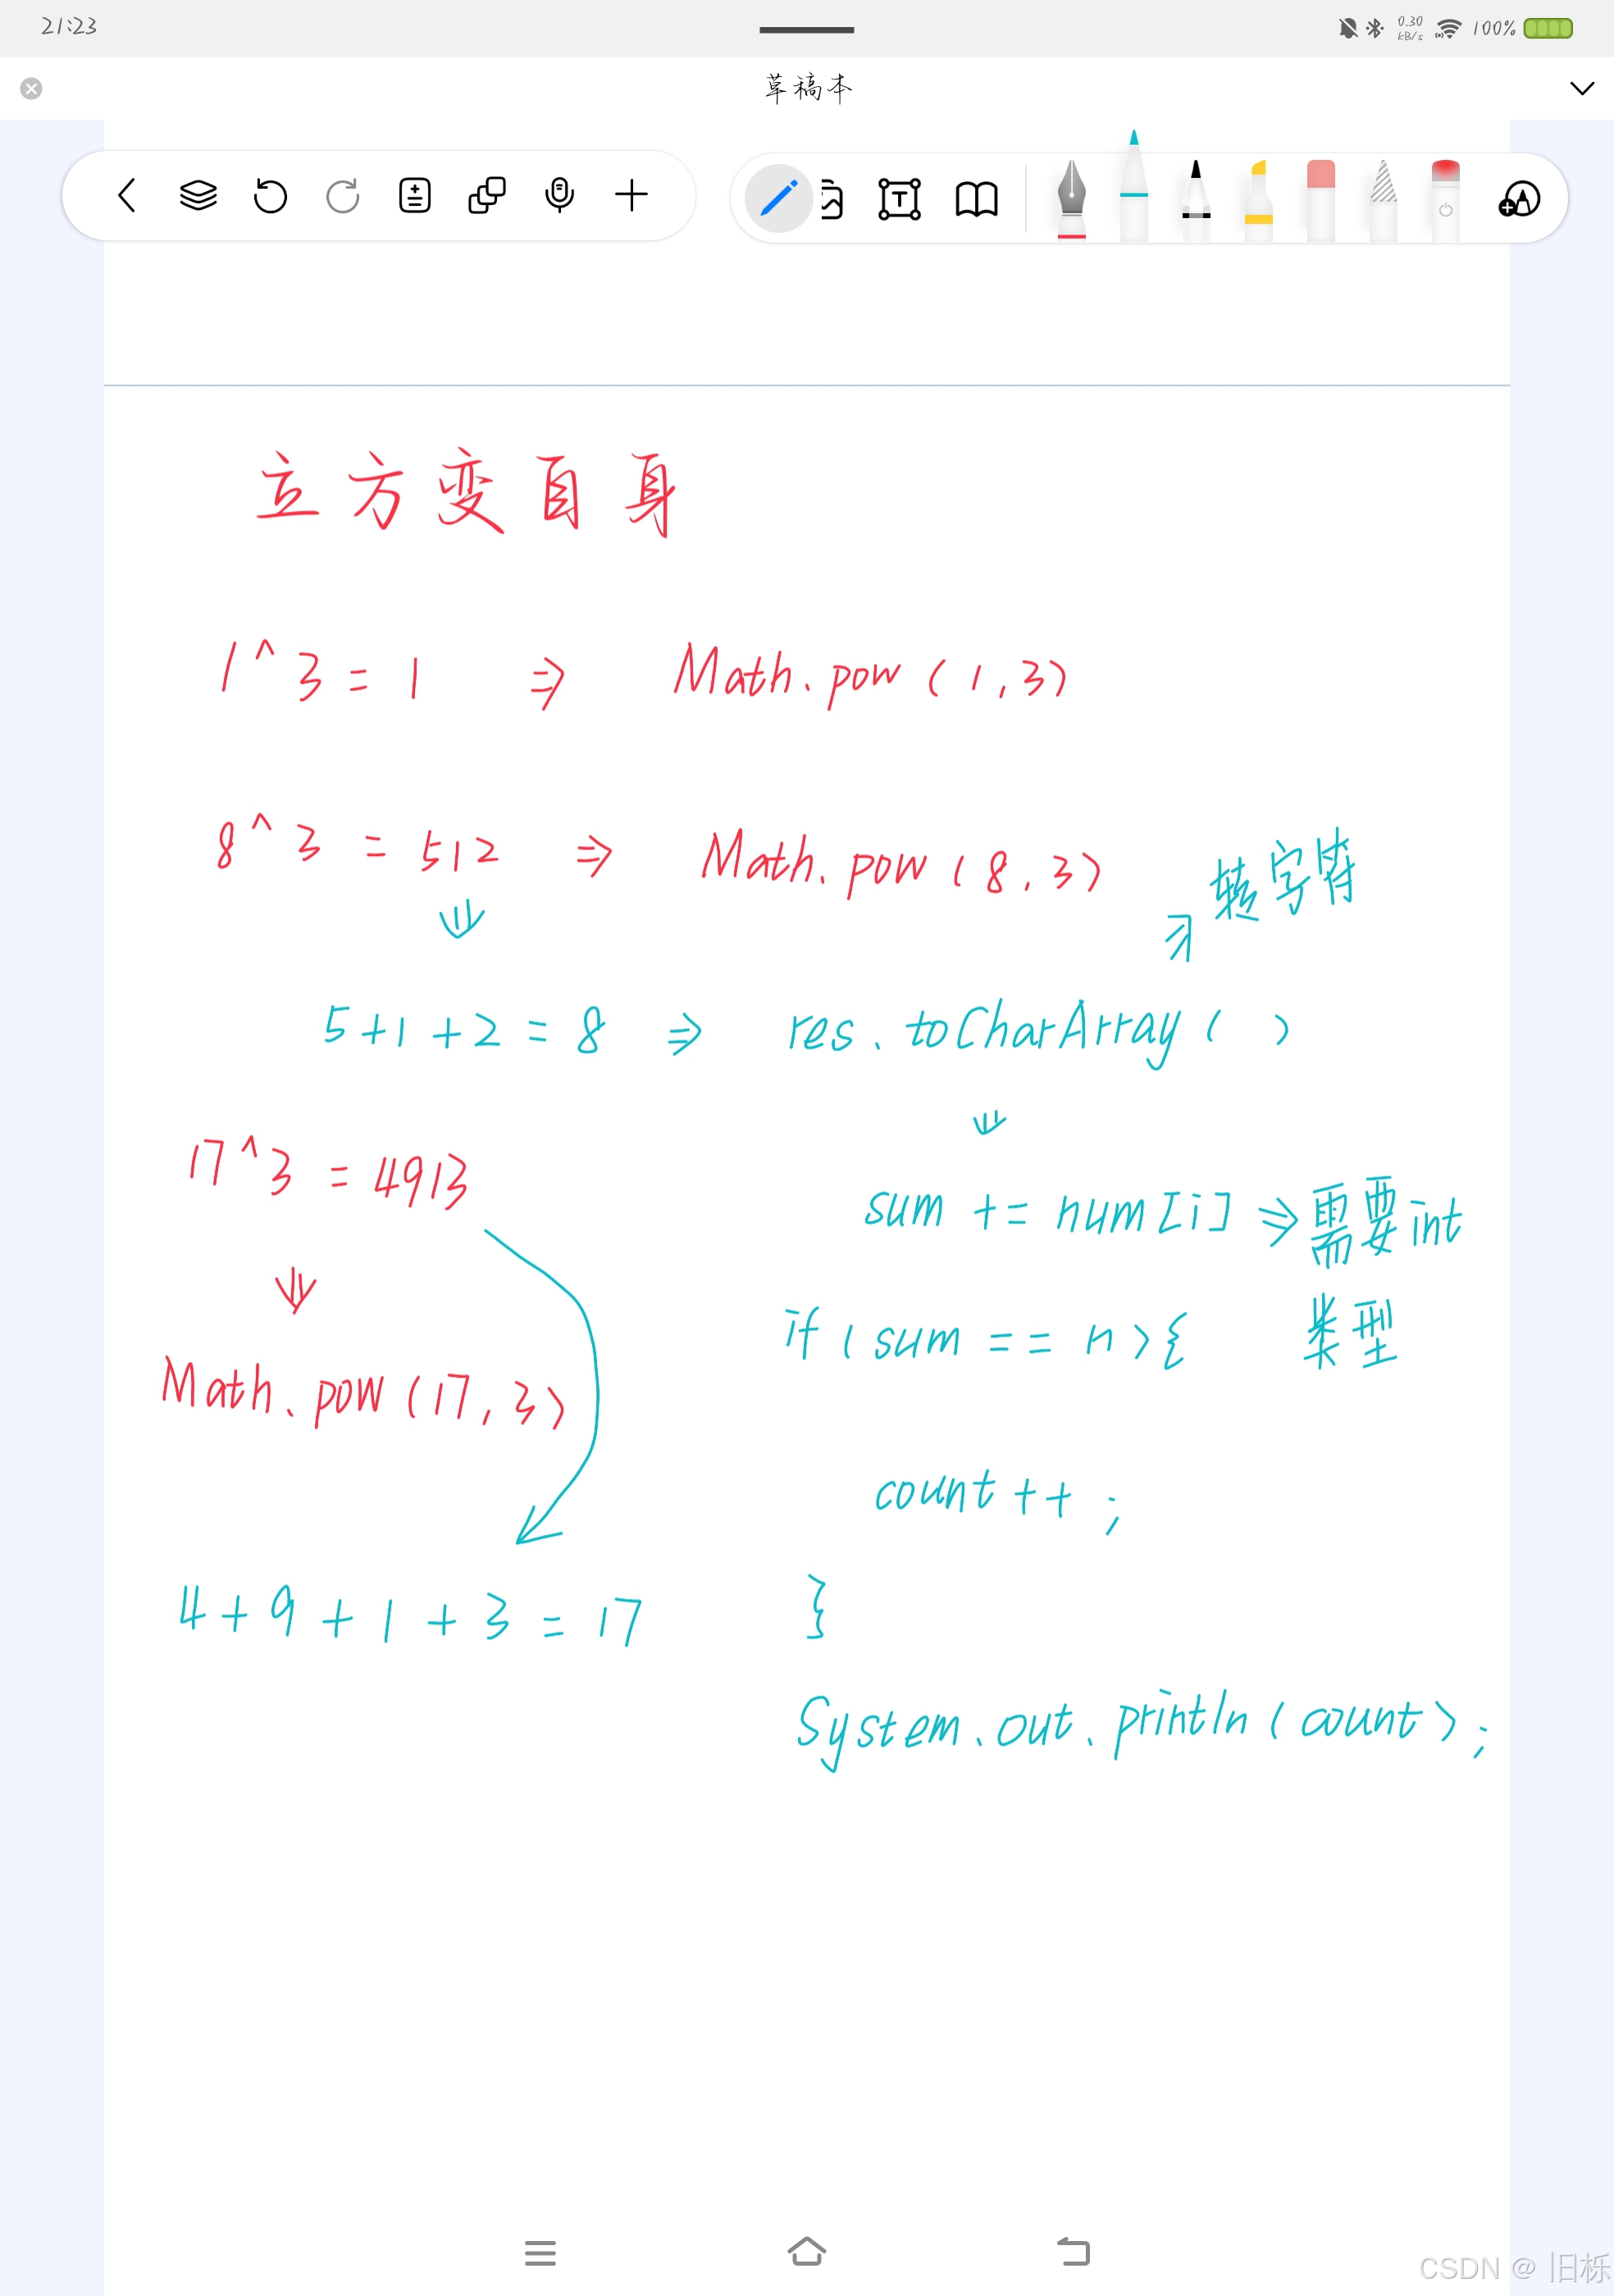 21:23
0.30 kB/s 100%
草稿本
立方变自身
1^3 = 1 ⇒ Math.pow(1,3)
8^3 = 512 ⇒ Math.pow(8,3)
转字符
5+1+2=8 ⇒ res.toCharArray( )
17^3 = 4913
sum += num[i] ⇒ 需要int
类型
if(sum == n){
Math.pow(17,3)
count++;
4+9+1+3=17
}
System.out.println(count);
CSDN @旧栎